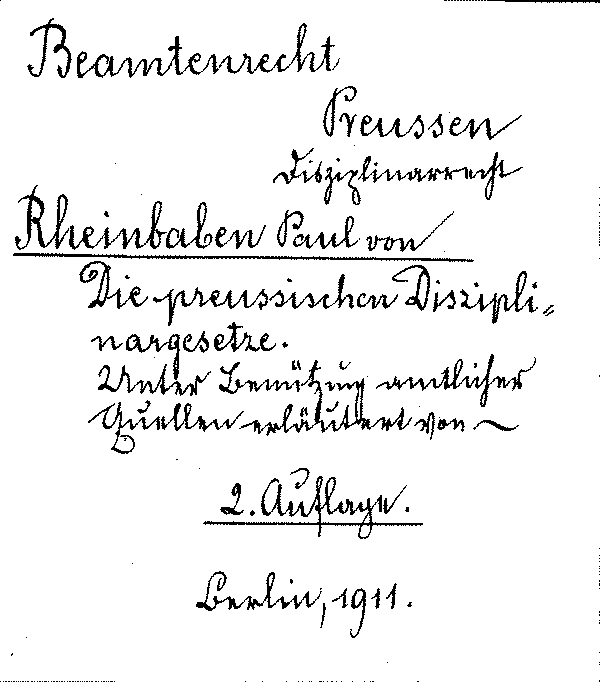 Beamtenrecht
Preussen
Disziplinarrecht
Rheinbaben Paul von
Die preussischen Diszipli=
nargesetze.
Unter Benützung amtlicher
Quellen erläutert von ~
2. Auflage.
Berlin, 1911.